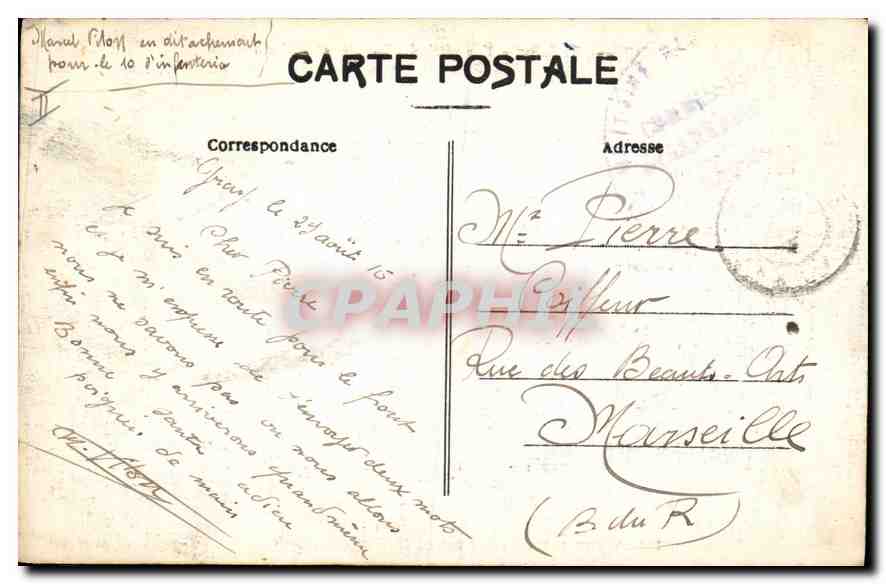 Marcel Pitoff en détachement
pour le 10 d'infanterie
II
CARTE POSTALE
Correspondance
Adresse
le 29 août 16
Cher Pierre
Je suis en route pour le front
et je m'empresse de t'envoyer deux mots
nous ne savons pas ou nous allons
enfin nous y arriverons quand même
Bonne santé adieu
poignée de main
Mr Pierre
Coiffeur
Rue des Beaux-Arts
Marseille
(B du R)
CPAPHIL